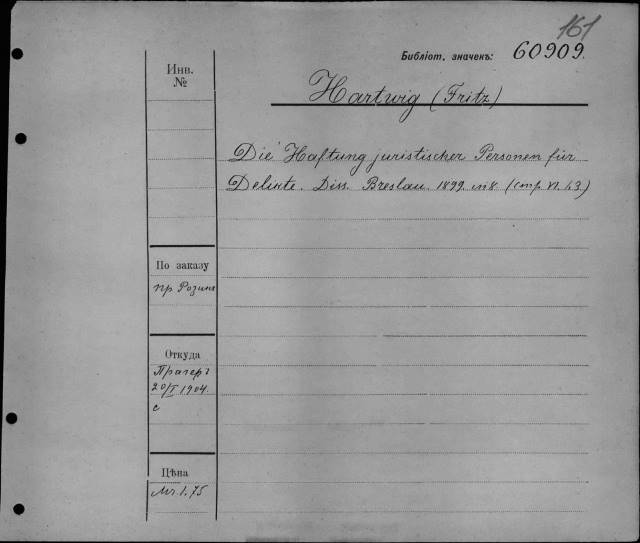 161
Библіот. значекъ: 60909.
Инв.
№
Hartwig (Fritz)
Die Haftung juristischer Personen für
Delikte. Diss. Breslau. 1899. in 8. (стр. VI. 43)
По заказу
пр Розинъ
Откуда
Прагеръ
20/I 1904.
с
Цѣна
Мк 1.75